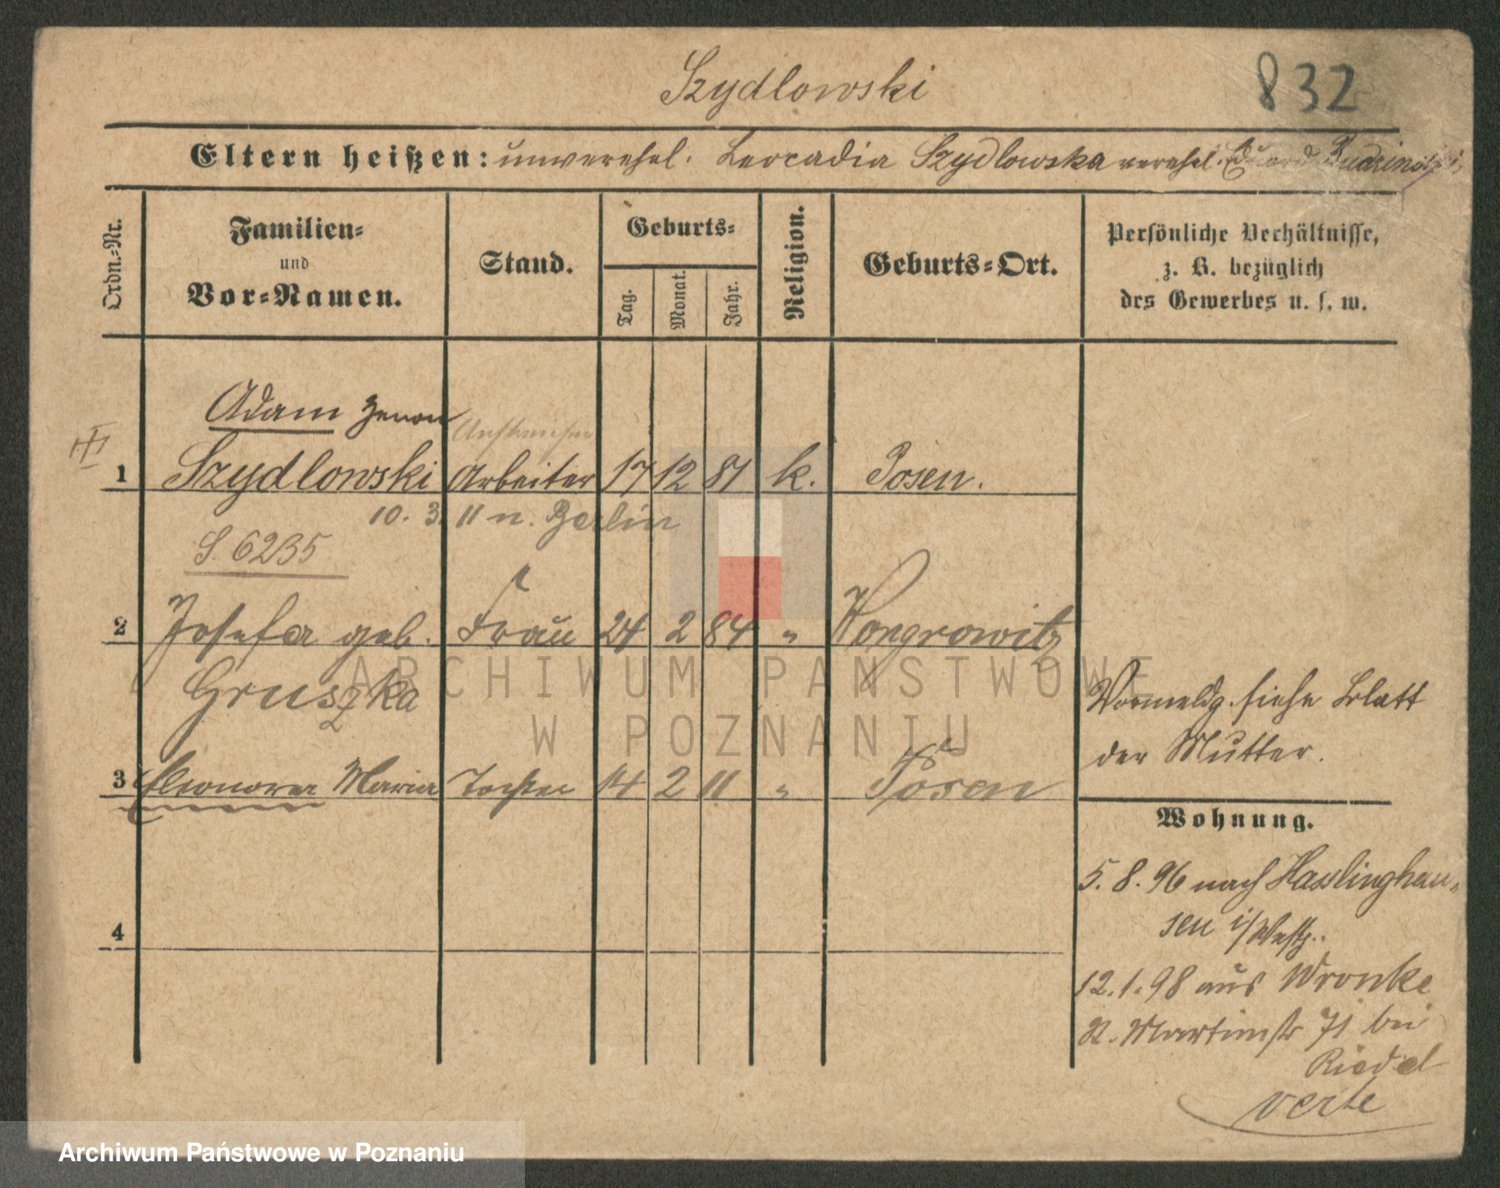 Szydlowski
832
Eltern heißen: unverehel. Leocadia Szydlowska verehel. Eduard Budzinski
Ordn.-Nr.
Familien-
und
Vor-Namen.
Stand.
Geburts-
Tag.
Monat.
Jahr.
Religion.
Geburts-Ort.
Persönliche Verhältnisse,
z. B. bezüglich
des Gewerbes u. s. w.
Adam Zenon
1 Szydlowski Arbeiter 17 12 81 k. Posen.
10. 3. 11 n. Berlin
S. 6235
2 Josefa geb. Frau 24 2 84 " Wongrowitz
Gruszka
Vormeldg. siehe Blatt
der Mutter.
3 Eleonora Maria Tochter 14 2 11 " Posen
Wohnung.
5. 8. 96 nach Hasslinghau-
sen i/Westf.
4
12. 1. 98 aus Wronke
St. Martinstr 71 bei
Riedel
verte
ARCHIWUM PAŃSTWOWE
W POZNANIU
Archiwum Państwowe w Poznaniu